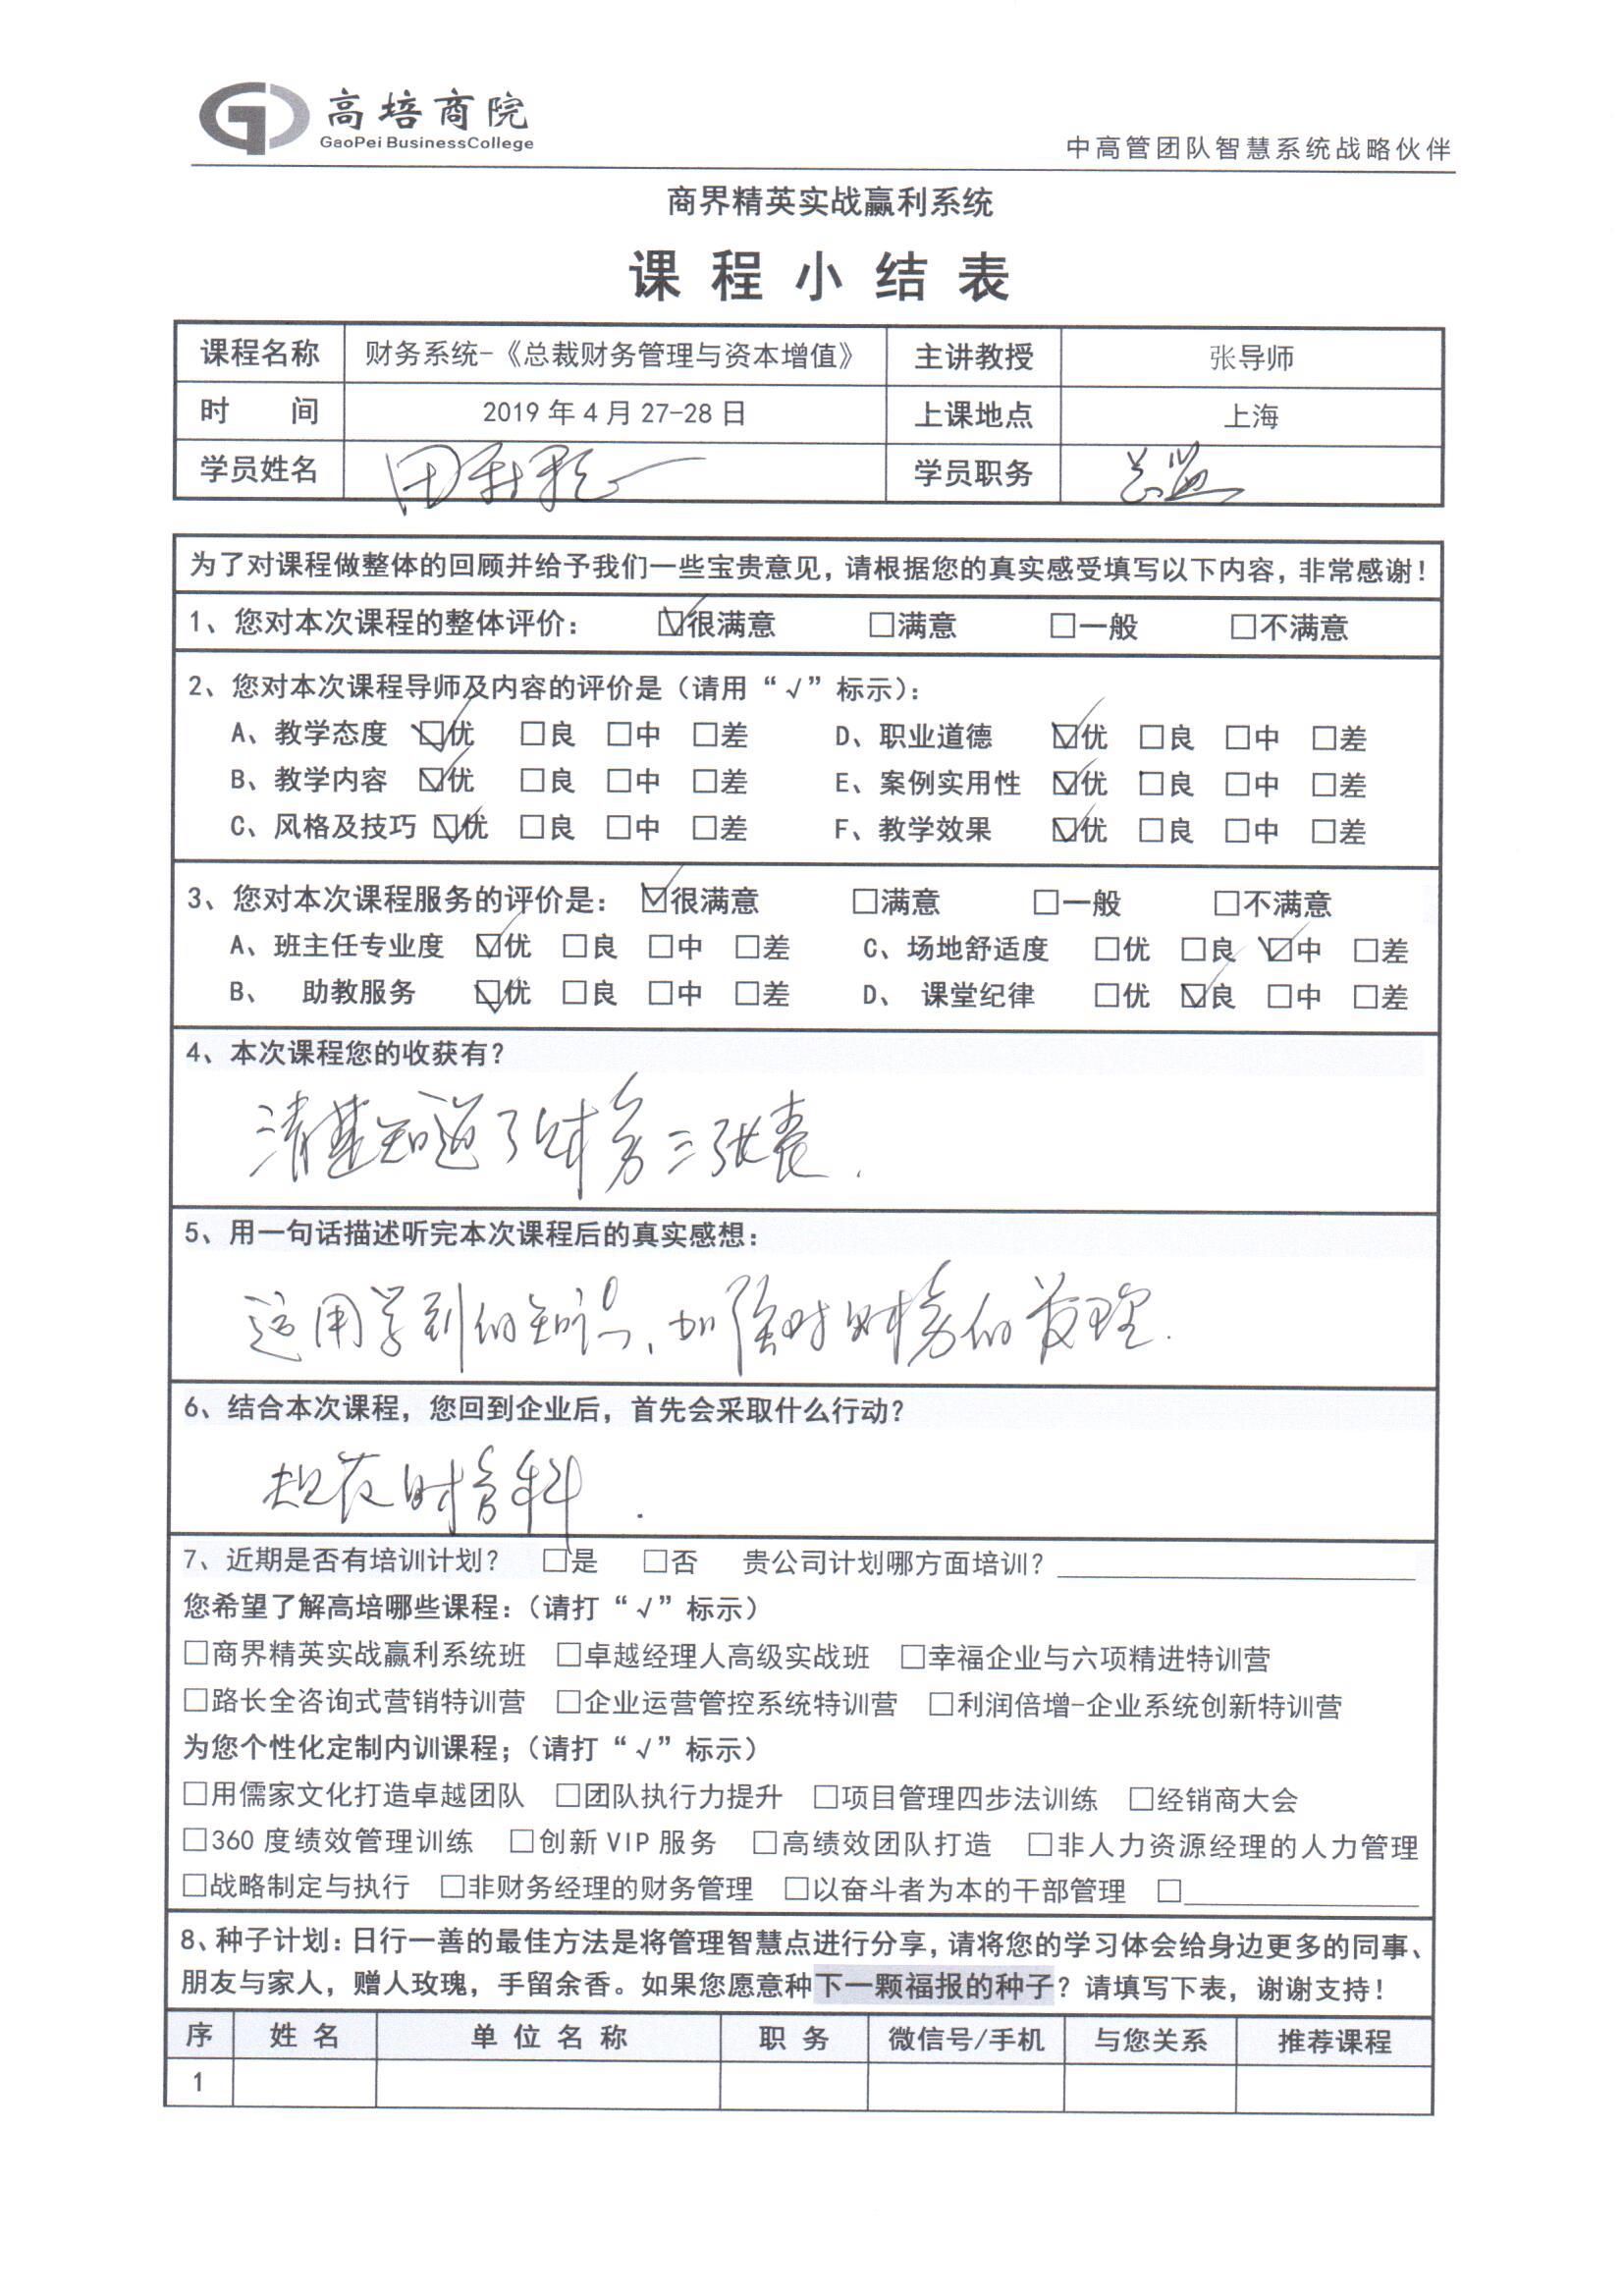 高培商院
GaoPei BusinessCollege
中高管团队智慧系统战略伙伴
商界精英实战赢利系统
课程小结表
课程名称 财务系统-《总裁财务管理与资本增值》 主讲教授 张导师
时 间 2019年4月27-28日 上课地点 上海
学员姓名 学员职务 总监
为了对课程做整体的回顾并给予我们一些宝贵意见，请根据您的真实感受填写以下内容，非常感谢！
1、您对本次课程的整体评价： ☑很满意 □满意 □一般 □不满意
2、您对本次课程导师及内容的评价是（请用“√”标示）：
A、教学态度 ☑优 □良 □中 □差 D、职业道德 ☑优 □良 □中 □差
B、教学内容 ☑优 □良 □中 □差 E、案例实用性 ☑优 □良 □中 □差
C、风格及技巧 ☑优 □良 □中 □差 F、教学效果 ☑优 □良 □中 □差
3、您对本次课程服务的评价是： ☑很满意 □满意 □一般 □不满意
A、班主任专业度 ☑优 □良 □中 □差 C、场地舒适度 □优 □良 ☑中 □差
B、 助教服务 ☑优 □良 □中 □差 D、 课堂纪律 □优 ☑良 □中 □差
4、本次课程您的收获有？
清楚知道了财务三张表.
5、用一句话描述听完本次课程后的真实感想：
运用学到的知识、加强对财务的管理.
6、结合本次课程，您回到企业后，首先会采取什么行动？
规范财务科.
7、近期是否有培训计划？ □是 □否 贵公司计划哪方面培训？
您希望了解高培哪些课程：（请打“√”标示）
□商界精英实战赢利系统班 □卓越经理人高级实战班 □幸福企业与六项精进特训营
□路长全咨询式营销特训营 □企业运营管控系统特训营 □利润倍增-企业系统创新特训营
为您个性化定制内训课程；（请打“√”标示）
□用儒家文化打造卓越团队 □团队执行力提升 □项目管理四步法训练 □经销商大会
□360度绩效管理训练 □创新VIP服务 □高绩效团队打造 □非人力资源经理的人力管理
□战略制定与执行 □非财务经理的财务管理 □以奋斗者为本的干部管理 □
8、种子计划：日行一善的最佳方法是将管理智慧点进行分享，请将您的学习体会给身边更多的同事、
朋友与家人，赠人玫瑰，手留余香。如果您愿意种下一颗福报的种子？请填写下表，谢谢支持！
序 姓名 单位名称 职务 微信号/手机 与您关系 推荐课程
1